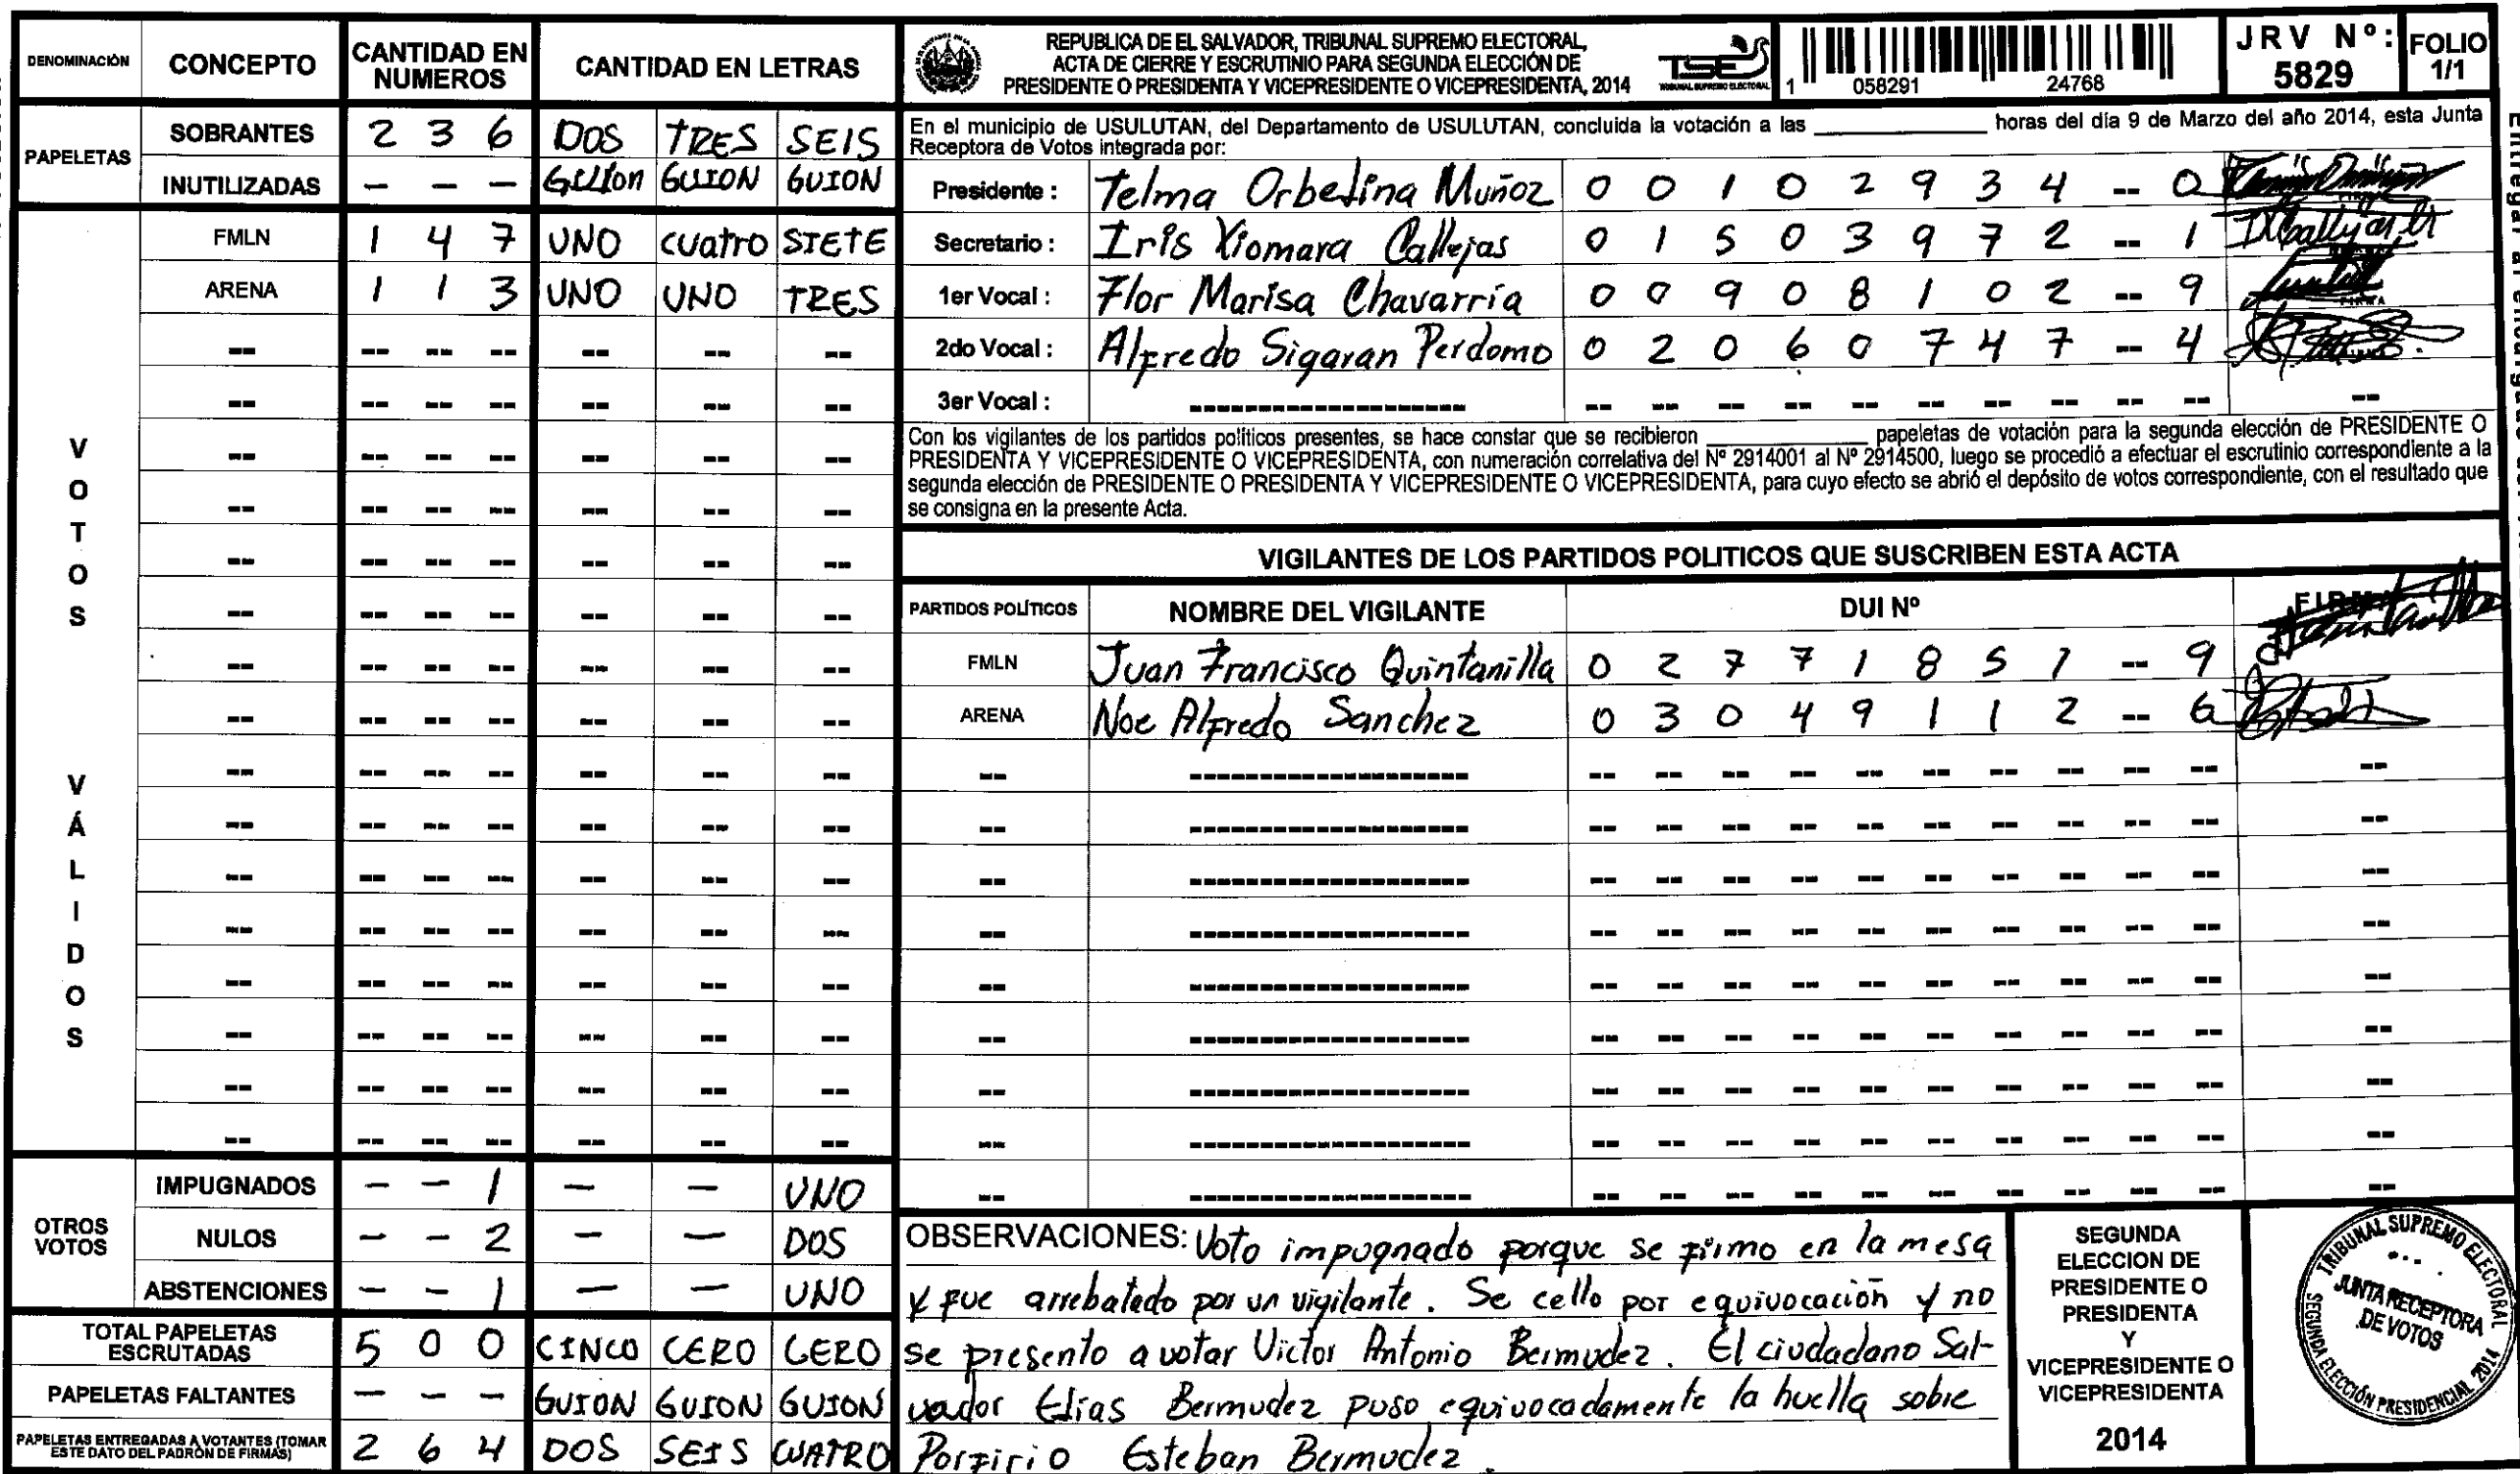 DENOMINACIÓN CONCEPTO CANTIDAD EN NUMEROS CANTIDAD EN LETRAS
PAPELETAS
SOBRANTES 2 3 6 DOS TRES SEIS
INUTILIZADAS - - - GUION GUION GUION
VOTOS VÁLIDOS
FMLN 1 4 7 UNO CUATRO SIETE
ARENA 1 1 3 UNO UNO TRES
OTROS VOTOS
IMPUGNADOS - - 1 - - UNO
NULOS - - 2 - - DOS
ABSTENCIONES - - 1 - - UNO
TOTAL PAPELETAS ESCRUTADAS 5 0 0 CINCO CERO CERO
PAPELETAS FALTANTES - - - GUION GUION GUION
PAPELETAS ENTREGADAS A VOTANTES (TOMAR ESTE DATO DEL PADRÓN DE FIRMAS) 2 6 4 DOS SEIS CUATRO
REPUBLICA DE EL SALVADOR, TRIBUNAL SUPREMO ELECTORAL,
ACTA DE CIERRE Y ESCRUTINIO PARA SEGUNDA ELECCIÓN DE
PRESIDENTE O PRESIDENTA Y VICEPRESIDENTE O VICEPRESIDENTA, 2014
TSE
TRIBUNAL SUPREMO ELECTORAL
1 058291 24768
JRV Nº: 5829
FOLIO 1/1
En el municipio de USULUTAN, del Departamento de USULUTAN, concluida la votación a las ____________ horas del día 9 de Marzo del año 2014, esta Junta
Receptora de Votos integrada por:
Presidente : Telma Orbelina Muñoz 0 0 1 0 2 9 3 4 -- 0
Secretario : Iris Xiomara Callejas 0 1 5 0 3 9 7 2 -- 1
1er Vocal : Flor Marisa Chavarría 0 0 9 0 8 1 0 2 -- 9
2do Vocal : Alfredo Sigaran Perdomo 0 2 0 6 0 7 4 7 -- 4
3er Vocal : ------------------
Con los vigilantes de los partidos políticos presentes, se hace constar que se recibieron ____________ papeletas de votación para la segunda elección de PRESIDENTE O
PRESIDENTA Y VICEPRESIDENTE O VICEPRESIDENTA, con numeración correlativa del Nº 2914001 al Nº 2914500, luego se procedió a efectuar el escrutinio correspondiente a la
segunda elección de PRESIDENTE O PRESIDENTA Y VICEPRESIDENTE O VICEPRESIDENTA, para cuyo efecto se abrió el depósito de votos correspondiente, con el resultado que
se consigna en la presente Acta.
VIGILANTES DE LOS PARTIDOS POLITICOS QUE SUSCRIBEN ESTA ACTA
PARTIDOS POLÍTICOS NOMBRE DEL VIGILANTE DUI Nº FIRMA
FMLN Juan Francisco Quintanilla 0 2 7 7 1 8 5 1 -- 9
ARENA Noe Alfredo Sanchez 0 3 0 4 9 1 1 2 -- 6
OBSERVACIONES: Voto impugnado porque se firmo en la mesa
y fue arrebatado por un vigilante. Se cello por equivocación y no
se presento a votar Victor Antonio Bermudez. El ciudadano Sal-
vador Elias Bermudez puso equivocadamente la huella sobre
Porfirio Esteban Bermudez.
SEGUNDA
ELECCION DE
PRESIDENTE O
PRESIDENTA
Y
VICEPRESIDENTE O
VICEPRESIDENTA
2014
TRIBUNAL SUPREMO ELECTORAL
JUNTA RECEPTORA
DE VOTOS
SEGUNDA ELECCIÓN PRESIDENCIAL 2014